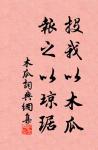 投我以木瓜
報之以瓊琚
木瓜詞典網集